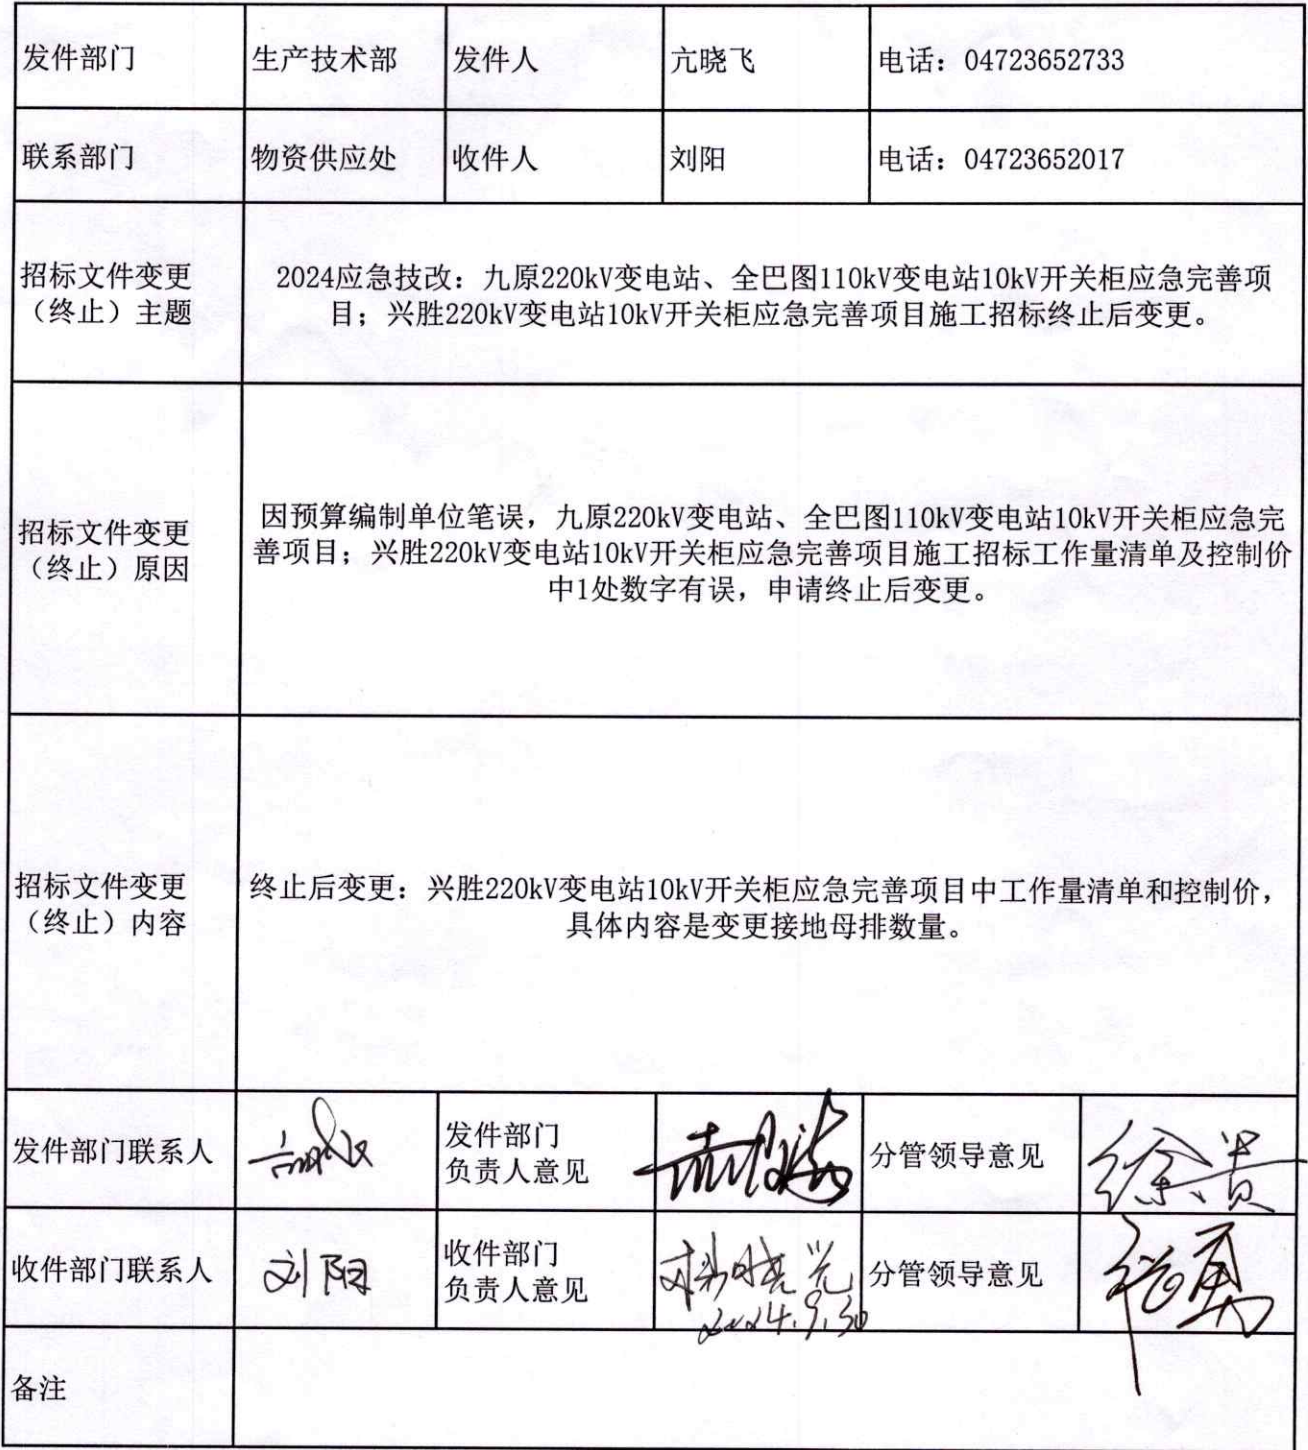 发件部门 生产技术部 发件人 亢晓飞 电话：04723652733
联系部门 物资供应处 收件人 刘阳 电话：04723652017
招标文件变更
（终止）主题
2024应急技改：九原220kV变电站、全巴图110kV变电站10kV开关柜应急完善项
目；兴胜220kV变电站10kV开关柜应急完善项目施工招标终止后变更。
招标文件变更
（终止）原因
因预算编制单位笔误，九原220kV变电站、全巴图110kV变电站10kV开关柜应急完
善项目；兴胜220kV变电站10kV开关柜应急完善项目施工招标工作量清单及控制价
中1处数字有误，申请终止后变更。
招标文件变更
（终止）内容
终止后变更：兴胜220kV变电站10kV开关柜应急完善项目中工作量清单和控制价，
具体内容是变更接地母排数量。
发件部门联系人
发件部门
负责人意见
分管领导意见
徐贵
收件部门联系人 刘阳
收件部门
负责人意见
2024.9.30
分管领导意见
备注